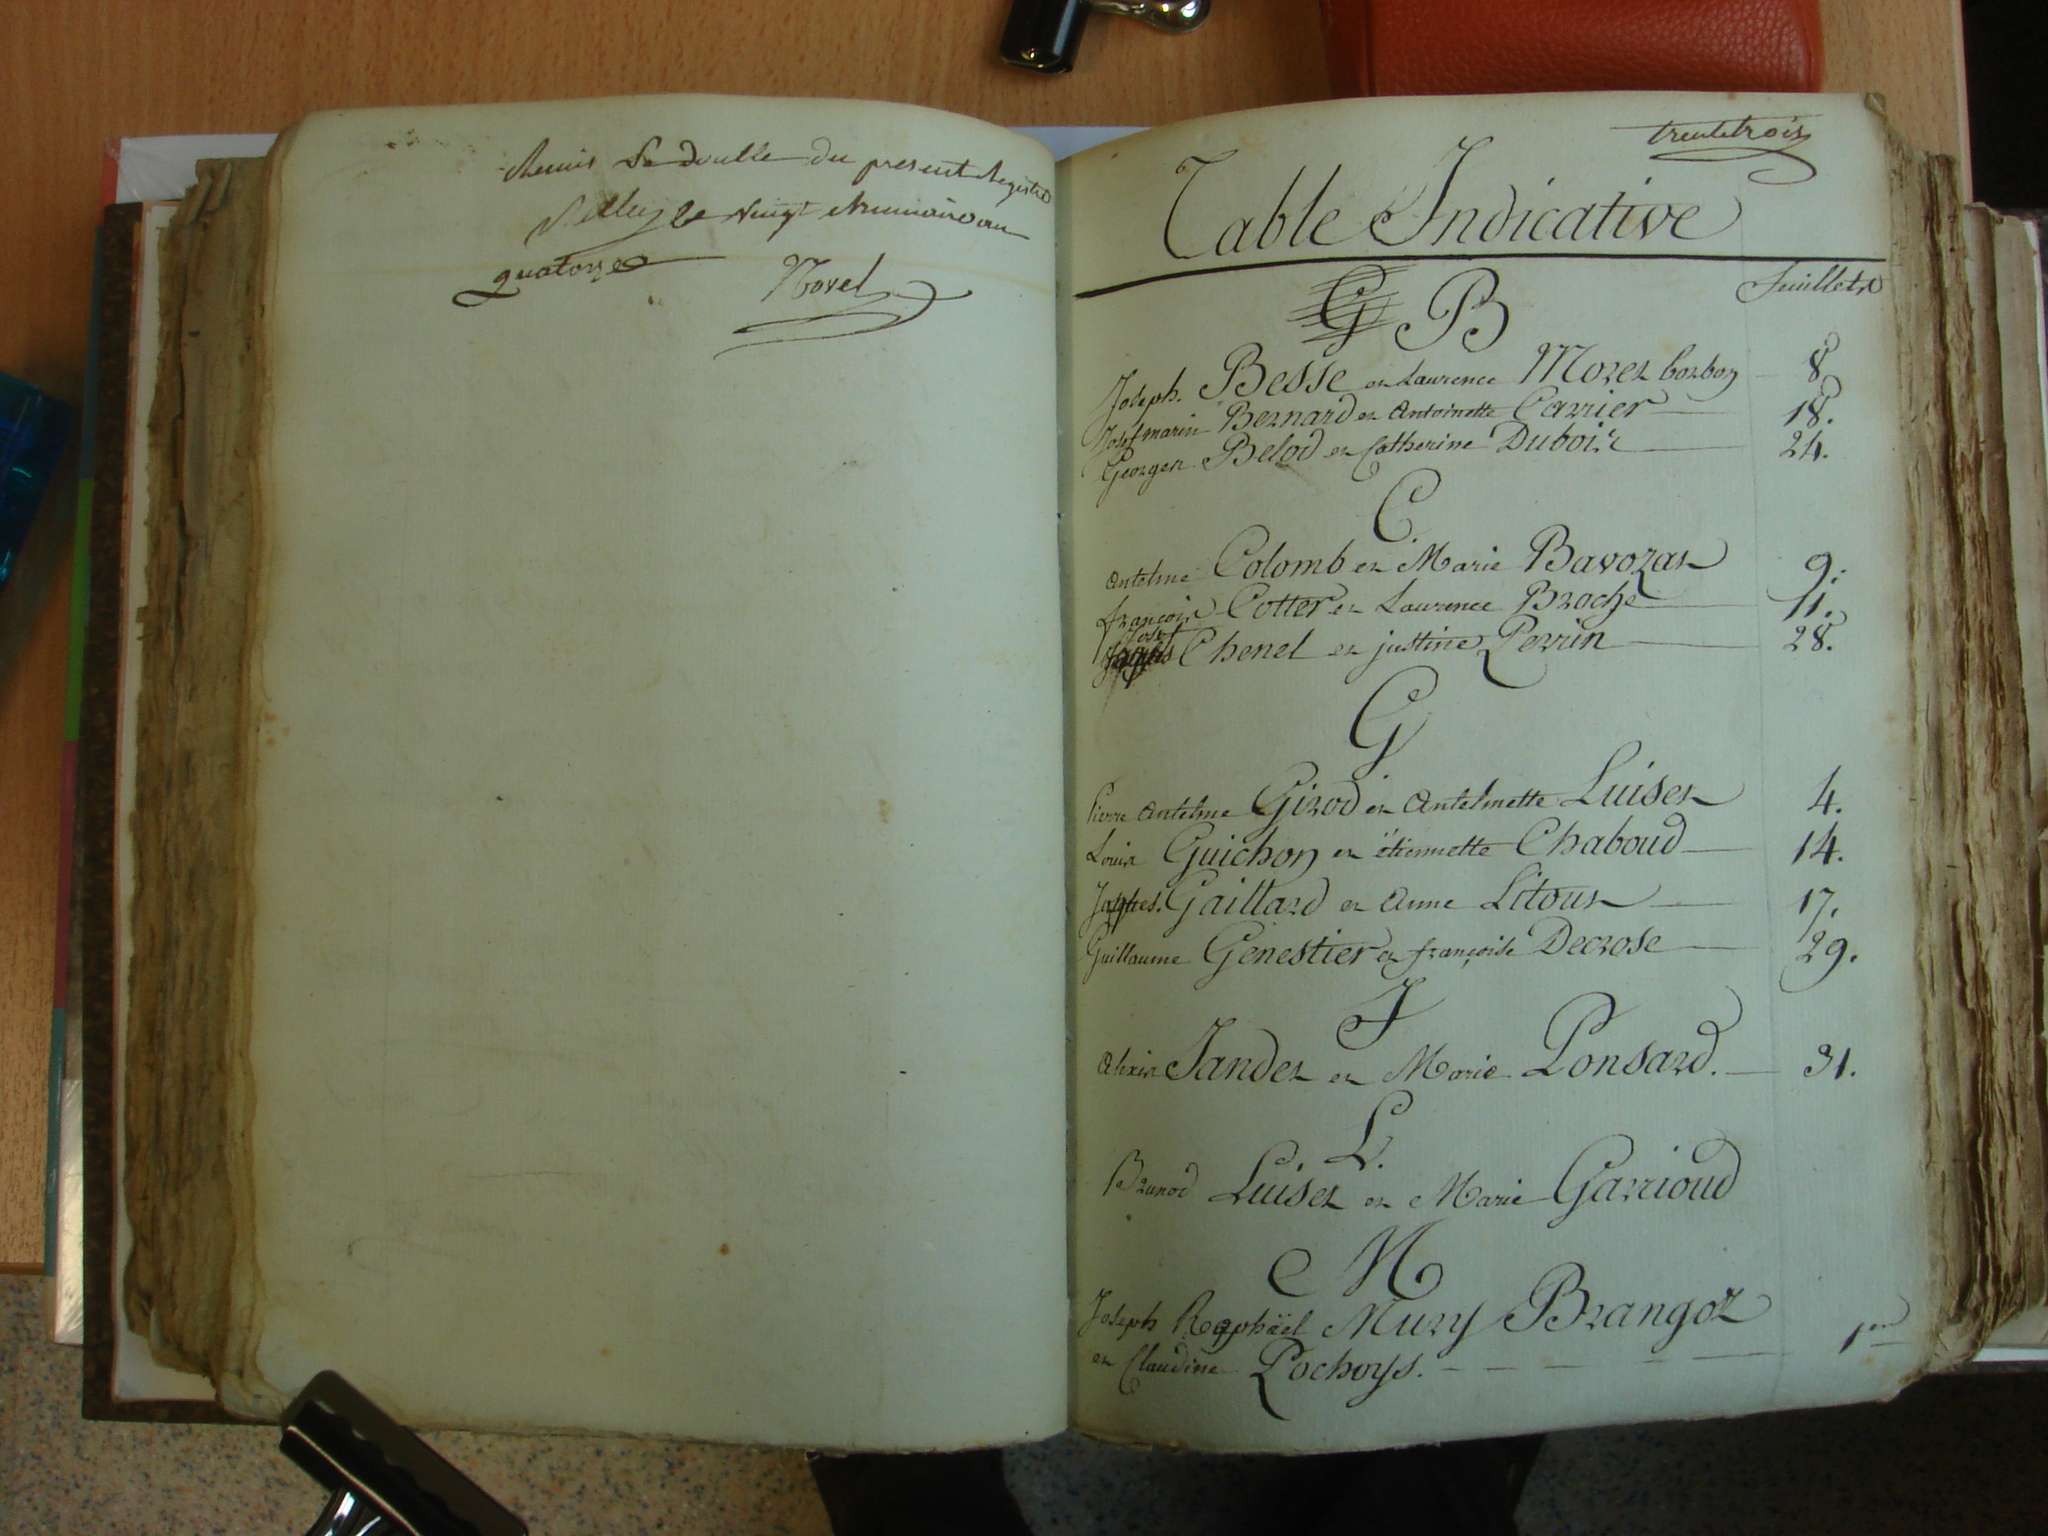 Remis Le double du present Registre
Belley le vingt Brumaire an
quatorze
Novel
trentetrois
Table Indicative
feuillets
G B
Joseph. Besse et Laurence Morez borbon 8
Josef marin Bernard et Antoinette Carrier 18.
Georges Belod et Catherine Dubois 24.
C
Antelme Colomb et Marie Bavozat 9.
françois Cotter et Laurence Broche 11.
Josef Chenel et justine Perrin 28.
G
Pierre Antelme Girod et Antelmette Luiset 4.
Louis Guichon et étiennette Chaboud 14.
Jacques. Gaillard et Anne Litout 17.
Guillaume Genestier et françoise Decrose 29.
J
Alexis Jandet et Marie Ponsard. 31.
L.
Brunod Luiset et Marie Garrioud
M
Joseph Raphäel Mury Brangoz
et Claudine Pochoys. 1er